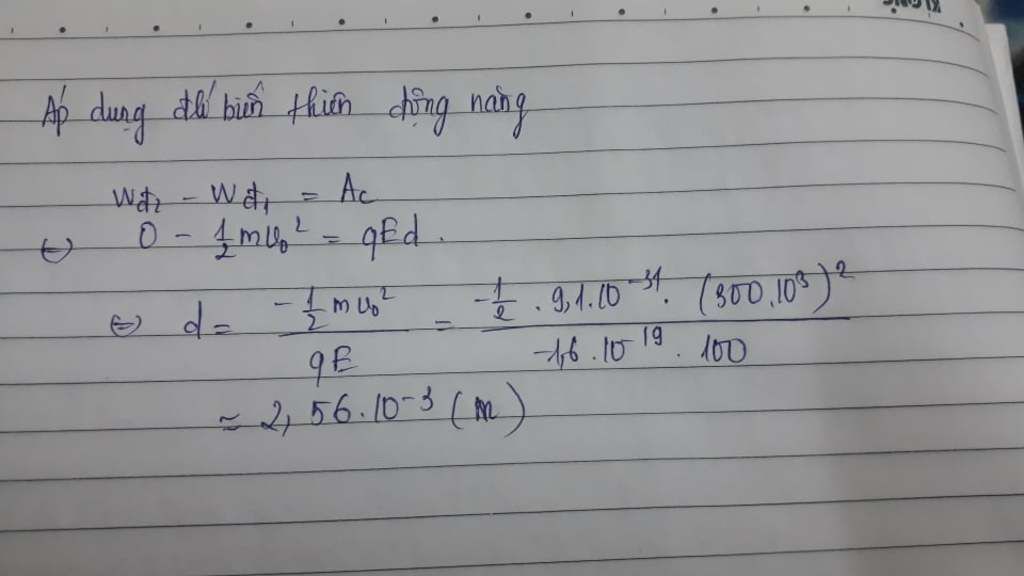 Áp dụng đlí biến thiên động năng
Wđ₂ - Wđ₁ = Ac
⇔ 0 - 1/2 mv₀² = qEd.
⇔ d = (-1/2 mv₀²)/(qE) = (-1/2 . 9,1.10⁻³¹. (300.10³)²)/(-1,6.10¹⁹. 100)
≈ 2,56.10⁻³ (m)